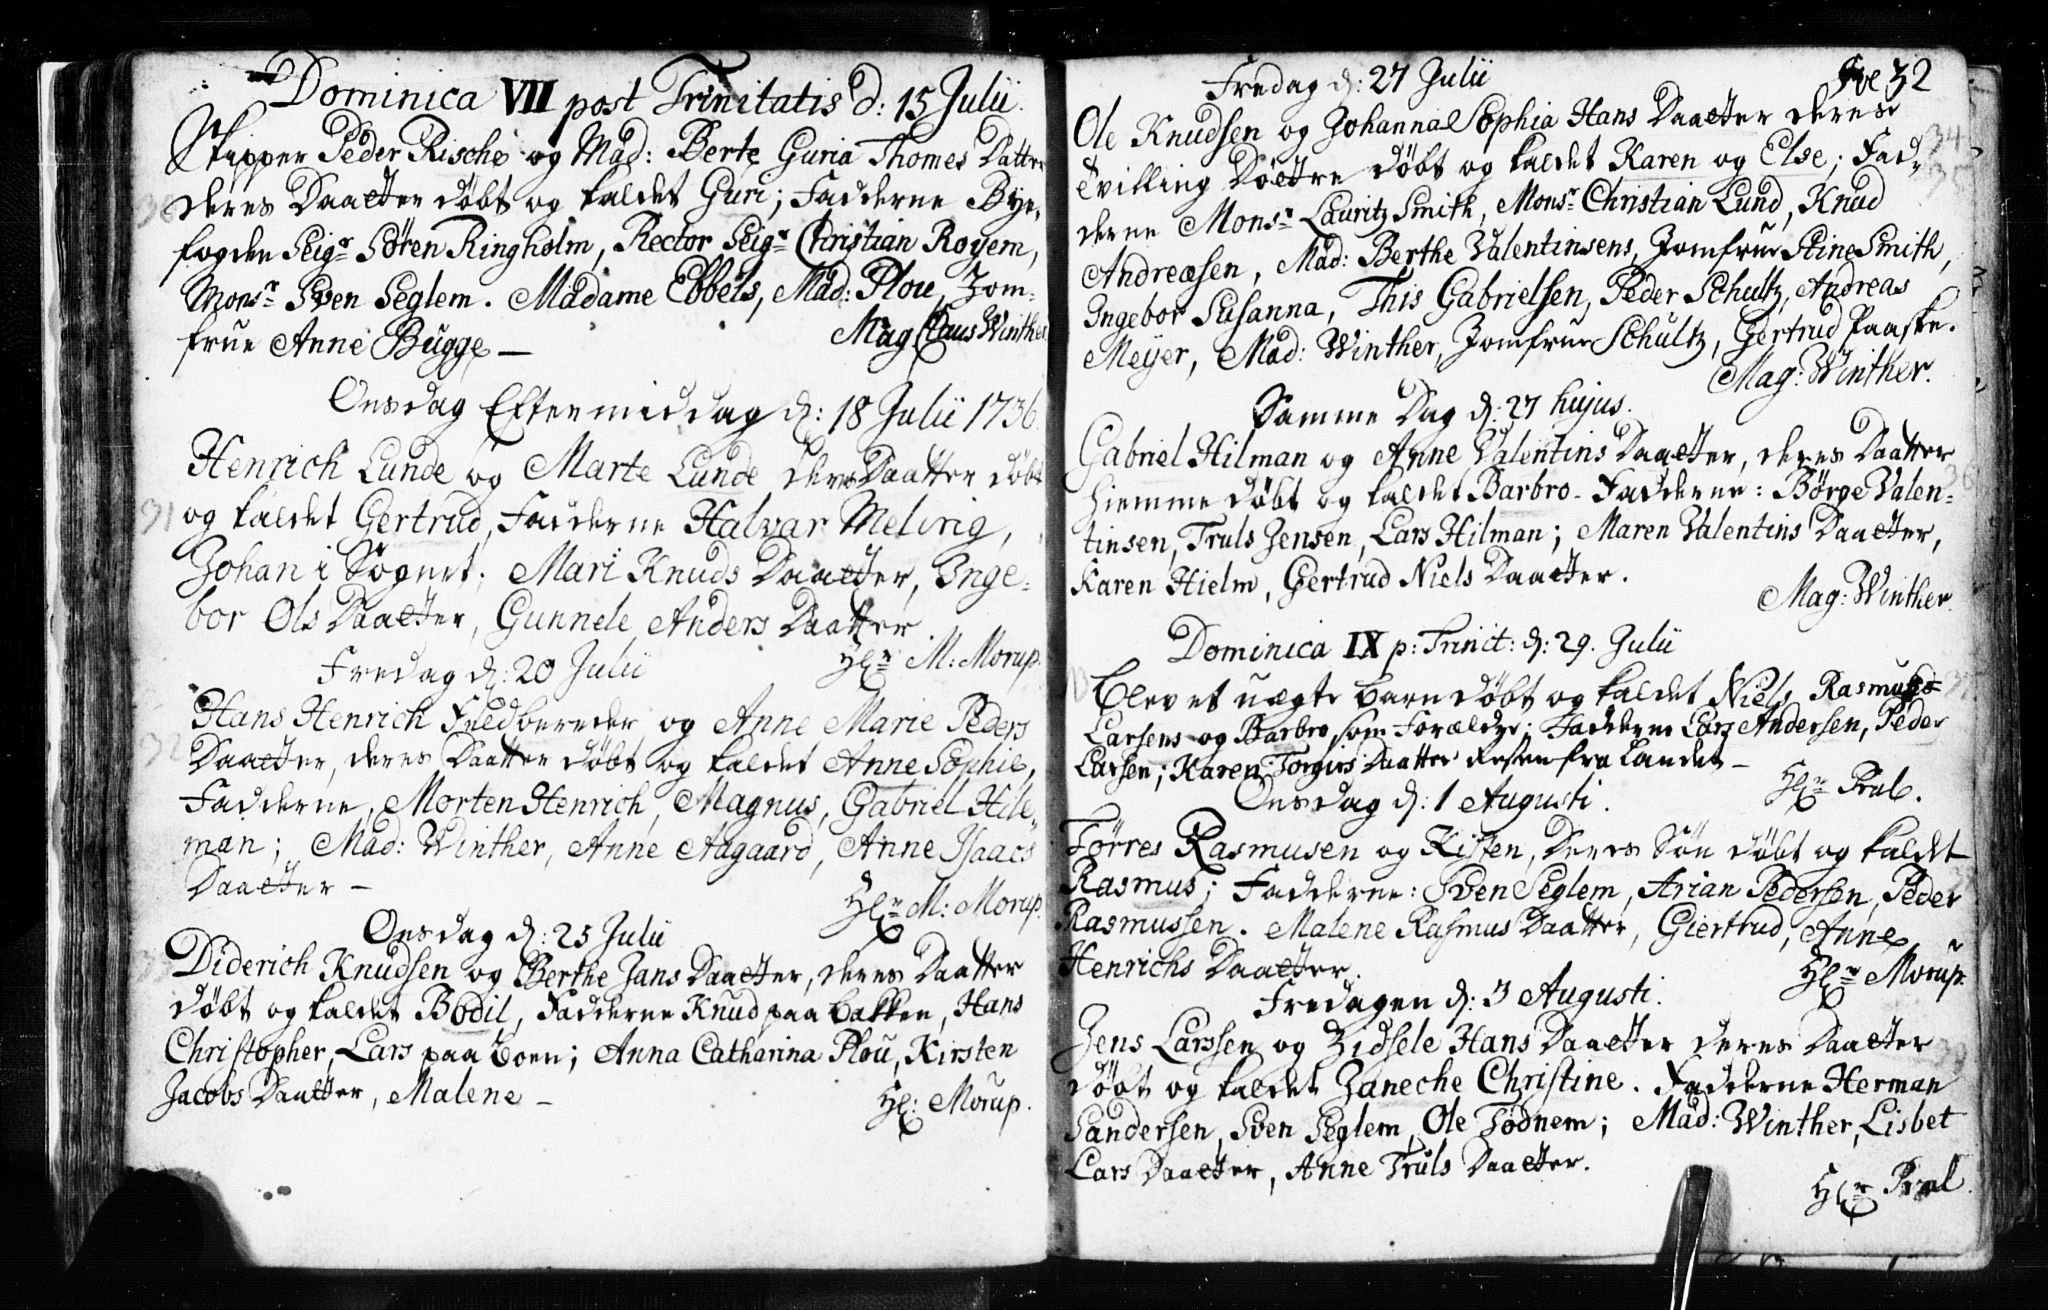 Dominica VII post Trinitatis d: 15 Julii.
Skipper Peder Rische og Mad: Berte Guria Thomes Datter
deres Daatter døbt og kaldet Guri; Fadderne Bye-
fogden Seigr Søren Ringholm, Rector Seigr Christian Royem,
Monsr Sven Seglem. Madame Ebbels, Mad: Plou, Jom-
frue Anne Bugge —
Mag Claus Winther
Onsdag Eftermiddag d: 18 Julii 1736.
Henrich Lunde og Marte Lunde deres Daatter døbt
31
og kaldet Gertrud, Fadderne Halvar Melvrig,
Johan i Sognet; Mari Knuds Daatter, Inge-
bor Ols Daatter, Gunnele Anders Daatter
Hr M: Morup.
Fredag d: 20 Julii
Hans Henrich Feldbereder og Anne Marie Peders
32
Daatter, deres Daatter døbt og kaldet Anne Sophie,
Fadderne, Morten Henrich, Magnus, Gabriel Hile-
man; Mad: Winther, Anne Aagaard, Anne Isaacs
Daatter —
Hr M: Morup.
Onsdag d: 25 Julii
Diderich Knudsen og Berthe Jans Daatter, deres Daatter
døbt og kaldet Bodil, Fadderne Knud paa Bakken, Hans
Christopher, Lars paa Boen; Anna Catharina Plou, Kirsten
Jacobs Daatter, Malene —
Hr: Morup.
32
Fredag d: 27 Julii
Ole Knudsen og Johanna Sophia Hans Daatter deres
34
Tvilling Døttre døbt og kaldet Karen og Else; Fad-
35
derne Monsr Lauritz Smith, Monsr Christian Lund, Knud
Andreæsen, Mad: Berthe Valentinsens, Jomfrue Stine Smith,
Ingebor Susanna, This Gabrielsen, Peder Schultz, Andreas
Meyer, Mad: Winther, Jomfrue Schultz, Gertrud Paaske.
Mag: Winther.
Samme Dag d: 27 hujus.
Gabriel Hilman og Anne Valentins Daatter, deres Daatter
36
hiemme døbt og kaldet Barbro - Fadderne: Børge Valen-
tinsen, Truls Jensen, Lars Hilman; Maren Valentins Daatter,
Karen Hielm, Gertrud Niels Daatter.
Mag: Winther.
Dominica IX p: Trinit: d: 29. Julii
Blev et uægte Barn døbt og kaldet Niels, Rasmus
Larsens og Barbro som Forældre; Fadderne Lars Andersen, Peder
Larsen; Karen Torgirs Daatter fra Landet —
Hr Pral.
Onsdag d: 1 Augusti.
Tørres Rasmusen og Kisten, Deres Søn døbt og kaldet
Rasmus; Fadderne: Sven Seglem, Arian Pedersen, Peder
Rasmussen. Malene Rasmus Daatter, Giertrud, Anne
Henrichs Daatter.
Hr Morup.
Fredagen d: 3 Augusti.
Jens Larssen og Zidsele Hans Daatter deres Daatter
døbt og kaldet Janeche Christine. Fadderne Herman
Sandersen, Sven Seglem, Ole Tødnem; Mad: Winther, Lisbet
Lars Daatter, Anne Truls Daatter.
Hr Pral.